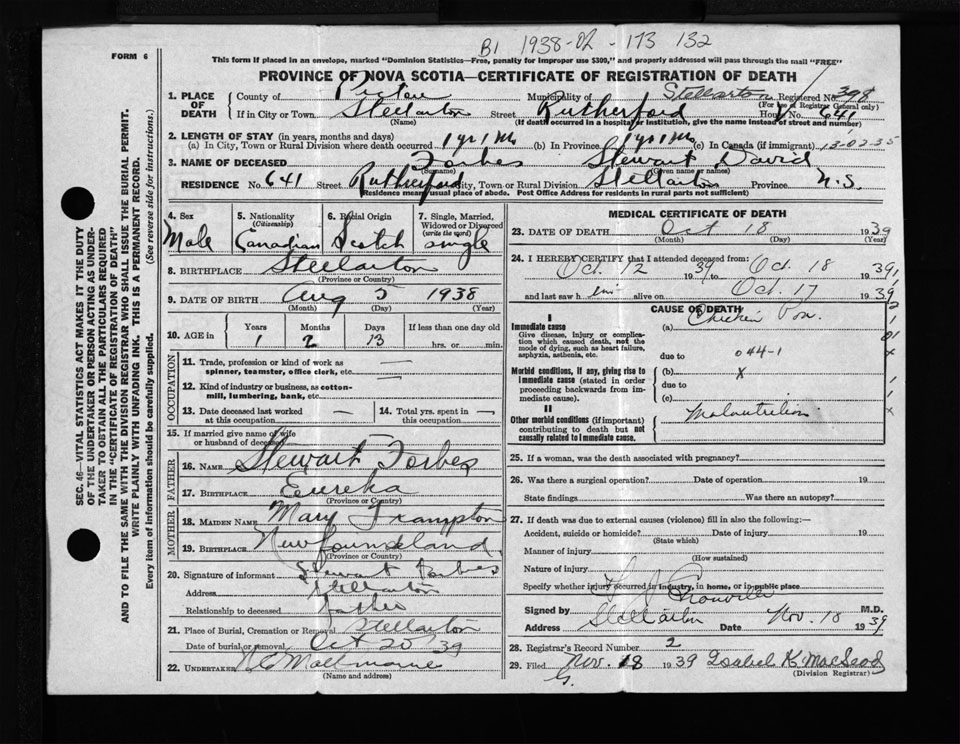 B1 1938-02-173 132
FORM 6
This form if placed in an envelope, marked "Dominion Statistics—Free, penalty for improper use $300," and properly addressed will pass through the mail "FREE"
PROVINCE OF NOVA SCOTIA—CERTIFICATE OF REGISTRATION OF DEATH
1. PLACE OF DEATH
County of Pictou Municipality of Stellarton Registered No. 398
(For use of Registrar General only)
If in City or Town Stellarton Street Rutherford House No. 641
(Name) (If death occurred in a hospital or institution, give the name instead of street and number)
2. LENGTH OF STAY (in years, months and days)
(a) In City, Town or Rural Division where death occurred 1 yr 1 M (b) In Province 1 yr 1 M (c) In Canada (if immigrant) 13-02-35
3. NAME OF DECEASED Forbes Stewart David
(Surname) (Given name or names)
RESIDENCE No. 641 Street Rutherford City, Town or Rural Division Stellarton Province N.S.
(Residence means usual place of abode. Post Office Address for residents in rural parts not sufficient)
4. Sex
Male
5. Nationality
(Citizenship)
Canadian
6. Racial Origin
Scotch
7. Single, Married, Widowed or Divorced
(write the word)
single
8. BIRTHPLACE Stellarton
(Province or Country)
9. DATE OF BIRTH Aug 5 1938
(Month) (Day) (Year)
10. AGE in
Years Months Days If less than one day old
1 2 13 hrs. or min.
OCCUPATION
11. Trade, profession or kind of work as spinner, teamster, office clerk, etc. —
12. Kind of industry or business, as cotton-mill, lumbering, bank, etc. —
13. Date deceased last worked at this occupation —
14. Total yrs. spent in this occupation —
15. If married give name of wife or husband of deceased
FATHER
16. NAME Stewart Forbes
17. BIRTHPLACE Eureka
(Province or Country)
MOTHER
18. MAIDEN NAME Mary Frampton
19. BIRTHPLACE Newfoundland
(Province or Country)
20. Signature of informant Stewart Forbes
Address Stellarton
Relationship to deceased father
21. Place of Burial, Cremation or Removal Stellarton
Date of burial or removal Oct 20/39
22. UNDERTAKER
(Name and address)
MEDICAL CERTIFICATE OF DEATH
23. DATE OF DEATH Oct 18 1939
(Month) (Day) (Year)
24. I HEREBY CERTIFY that I attended deceased from:
Oct. 12 1939 to Oct. 18 1939
and last saw him alive on Oct. 17 1939
CAUSE OF DEATH
I
Immediate cause
Give disease, injury or complication which caused death, not the mode of dying, such as heart failure, asphyxia, asthenia, etc.
(a) Chicken Pox
due to 044-1
Morbid conditions, if any, giving rise to immediate cause (stated in order proceeding backwards from immediate cause).
(b) x
due to
(c)
II
Other morbid conditions (if important) contributing to death but not causally related to immediate cause.
Malnutrition
25. If a woman, was the death associated with pregnancy?
26. Was there a surgical operation? Date of operation 19
State findings Was there an autopsy?
27. If death was due to external causes (violence) fill in also the following:—
Accident, suicide or homicide? Date of injury 19
(State which)
Manner of injury
(How sustained)
Nature of injury
Specify whether injury occurred in industry, in home, or in public place
Signed by M.D.
Address Stellarton Date Nov. 18 1939
28. Registrar's Record Number 2
29. Filed Nov. 18 1939 Isabel K. MacLeod
(Division Registrar)
G.
SEC. 46—VITAL STATISTICS ACT MAKES IT THE DUTY
OF THE UNDERTAKER OR PERSON ACTING AS UNDERTAKER
TO OBTAIN ALL THE PARTICULARS REQUIRED
IN THE "CERTIFICATE OF REGISTRATION OF DEATH"
AND TO FILE THE SAME WITH THE DIVISION REGISTRAR WHO SHALL ISSUE THE BURIAL PERMIT.
WRITE PLAINLY WITH UNFADING INK. THIS IS A PERMANENT RECORD.
Every item of information should be carefully supplied. (See reverse side for instructions.)